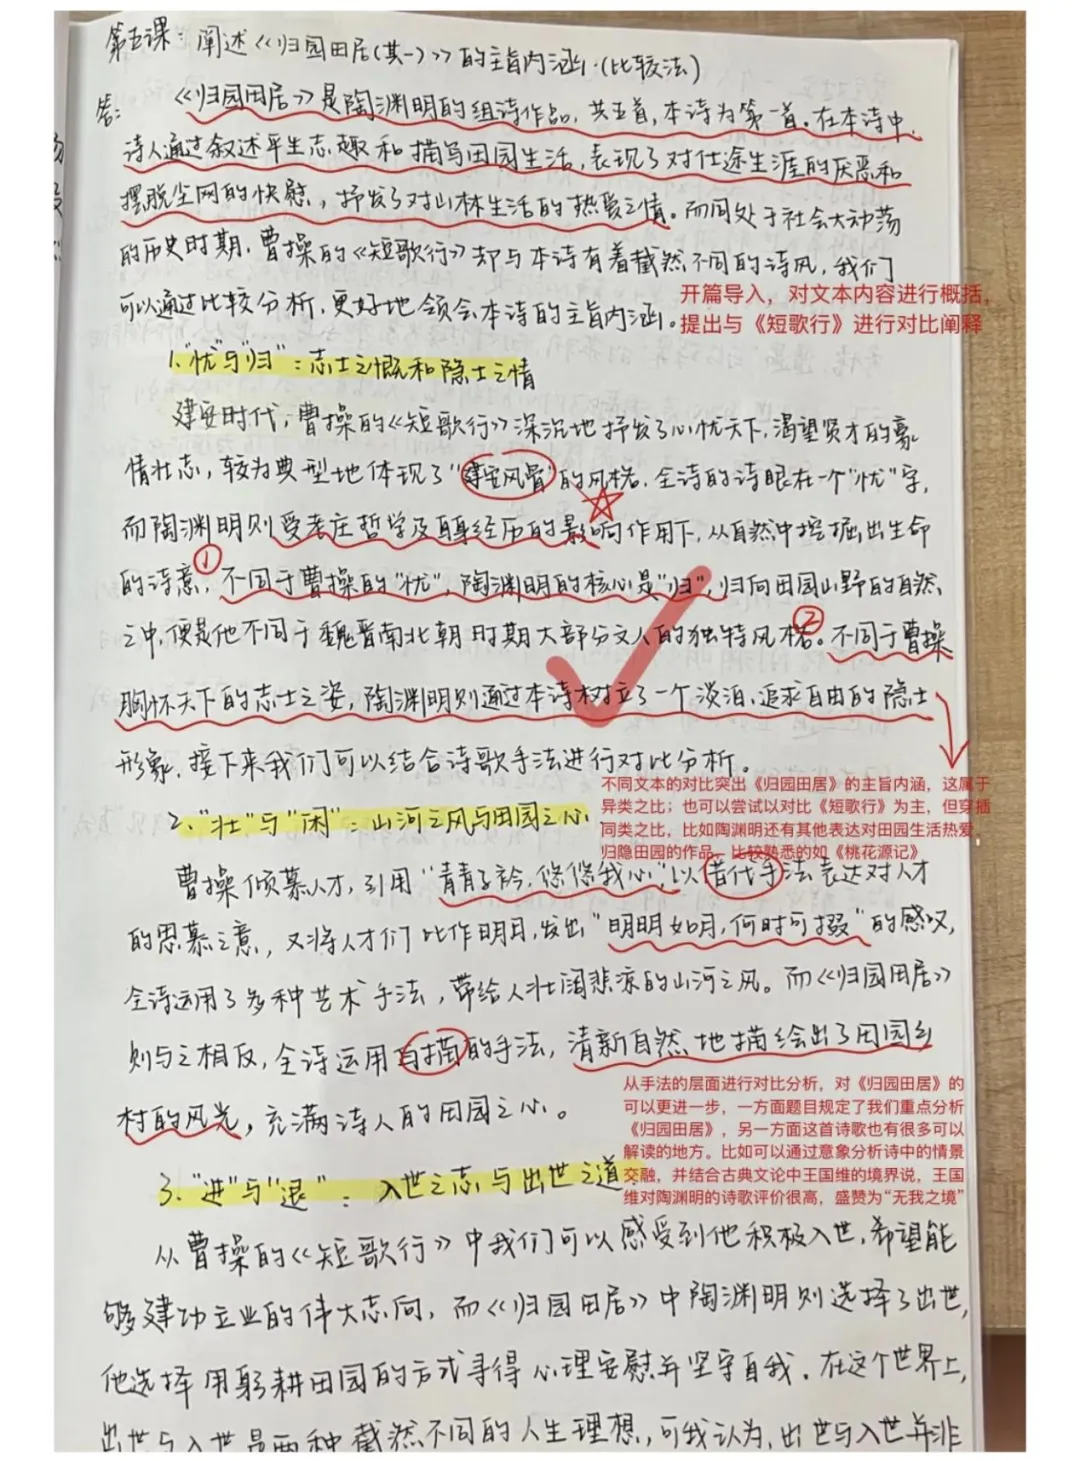 第五课：阐述《归园田居(其一)》的主旨内涵.(比较法)
答：
《归园田居》是陶渊明的组诗作品，共五首，本诗为第一首。在本诗中，
诗人通过叙述平生志趣和描写田园生活，表现了对仕途生涯的厌恶和
摆脱尘网的快慰，抒发了对山林生活的热爱之情。而同处于社会大动荡
的历史时期，曹操的《短歌行》却与本诗有着截然不同的诗风，我们
可以通过比较分析，更好地领会本诗的主旨内涵。
开篇导入，对文本内容进行概括，
提出与《短歌行》进行对比阐释
1."忧"与"归"：志士之慨和隐士之情
建安时代，曹操的《短歌行》深沉地抒发了心忧天下，渴望贤才的豪
情壮志，较为典型地体现了"建安风骨"的风格，全诗的诗眼在一个"忧"字，
而陶渊明则受老庄哲学及自身经历的影响作用下，从自然中挖掘出生命
的诗意，①不同于曹操的"忧"，陶渊明的核心是"归"，归向田园山野的自然
之中，便是他不同于魏晋南北朝时期大部分文人的独特风格。②不同于曹操
胸怀天下的志士之姿，陶渊明则通过本诗树立了一个淡泊、追求自由的隐士
形象，接下来我们可以结合诗歌手法进行对比分析。
不同文本的对比突出《归园田居》的主旨内涵，这属于
异类之比；也可以尝试以对比《短歌行》为主，但穿插
同类之比，比如陶渊明还有其他表达对田园生活热爱，
归隐田园的作品，比较熟悉的如《桃花源记》
2."壮"与"闲"：山河之风与田园之心
曹操倾慕人才，引用"青青子衿，悠悠我心"，以借代手法表达对人才
的思慕之意，又将人才们比作明月，发出"明明如月，何时可掇"的感叹，
全诗运用了多种艺术手法，带给人壮阔悲凉的山河之风。而《归园田居》
则与之相反，全诗运用白描的手法，清新自然地描绘出了田园乡
村的风光，充满诗人的田园之心。
从手法的层面进行对比分析，对《归园田居》的
可以更进一步，一方面题目规定了我们重点分析
《归园田居》，另一方面这首诗歌也有很多可以
解读的地方。比如可以通过意象分析诗中的情景
交融，并结合古典文论中王国维的境界说，王国
维对陶渊明的诗歌评价很高，盛赞为“无我之境”
3."进"与"退"：入世之志与出世之道
从曹操的《短歌行》中我们可以感受到他积极入世，希望能
够建功立业的伟大志向，而《归园田居》中陶渊明则选择了出世，
他选择用躬耕田园的方式寻得心理安慰并坚守自我。在这个世界上，
出世与入世是两种截然不同的人生理想，可我认为，出世与入世并非